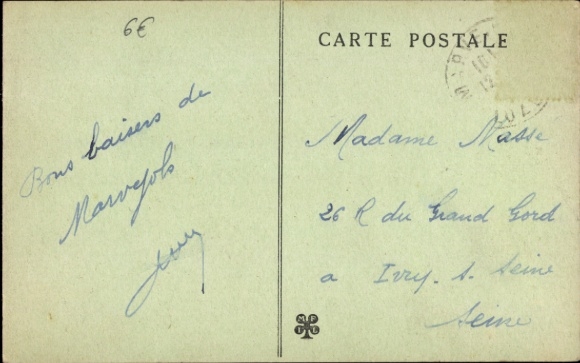 6€
CARTE POSTALE
Bons baisers de
Marvejols
Madame Nasse
26 R du Grand Gord
a Ivry. s. Seine
Seine